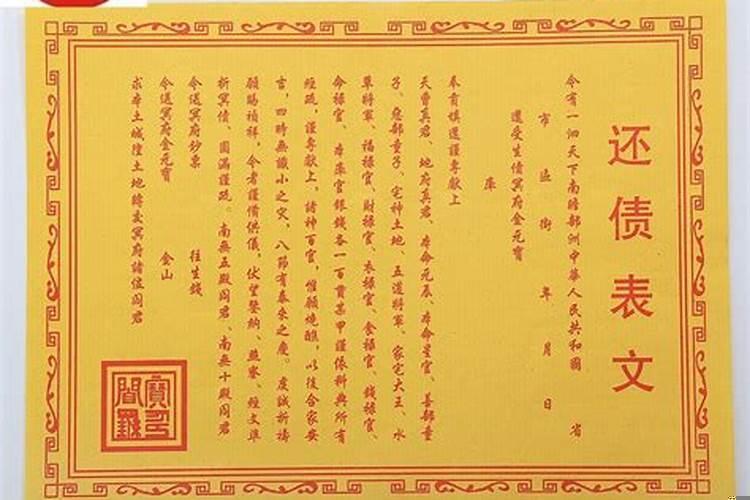 还债表文
今有一泗天下南瞻部洲中華人民共和國 省
市 區 街 年 月 日
還受生債冥府金元寶
庫
奉有填還謹專獻上
天曹真君、地府真君、本命元辰、本命星官、善部童
子、惡部童子、宅神土地、五道將軍、家宅大王、水
草將軍、福祿官、財祿官、衣祿官、食祿官、錢祿官、
命祿官、本庫官銀錢各一百貫某甲謹依科典所有
經疏,謹專獻上,諸神百官,惟願燒醮,以後合家安
吉,四時無識小之灾,八節有泰來之慶。虔誠祈禱
願賜禎祥,今者謹備供儀,伏望鑒納、燕寮、經文準
折冥債、圓滿謹疏。南無五殿阎君、南無十殿阎君
今送冥府钞票 往生錢
今送冥府金元寶 金山
求本土城隍土地轉交冥府諸位阎君